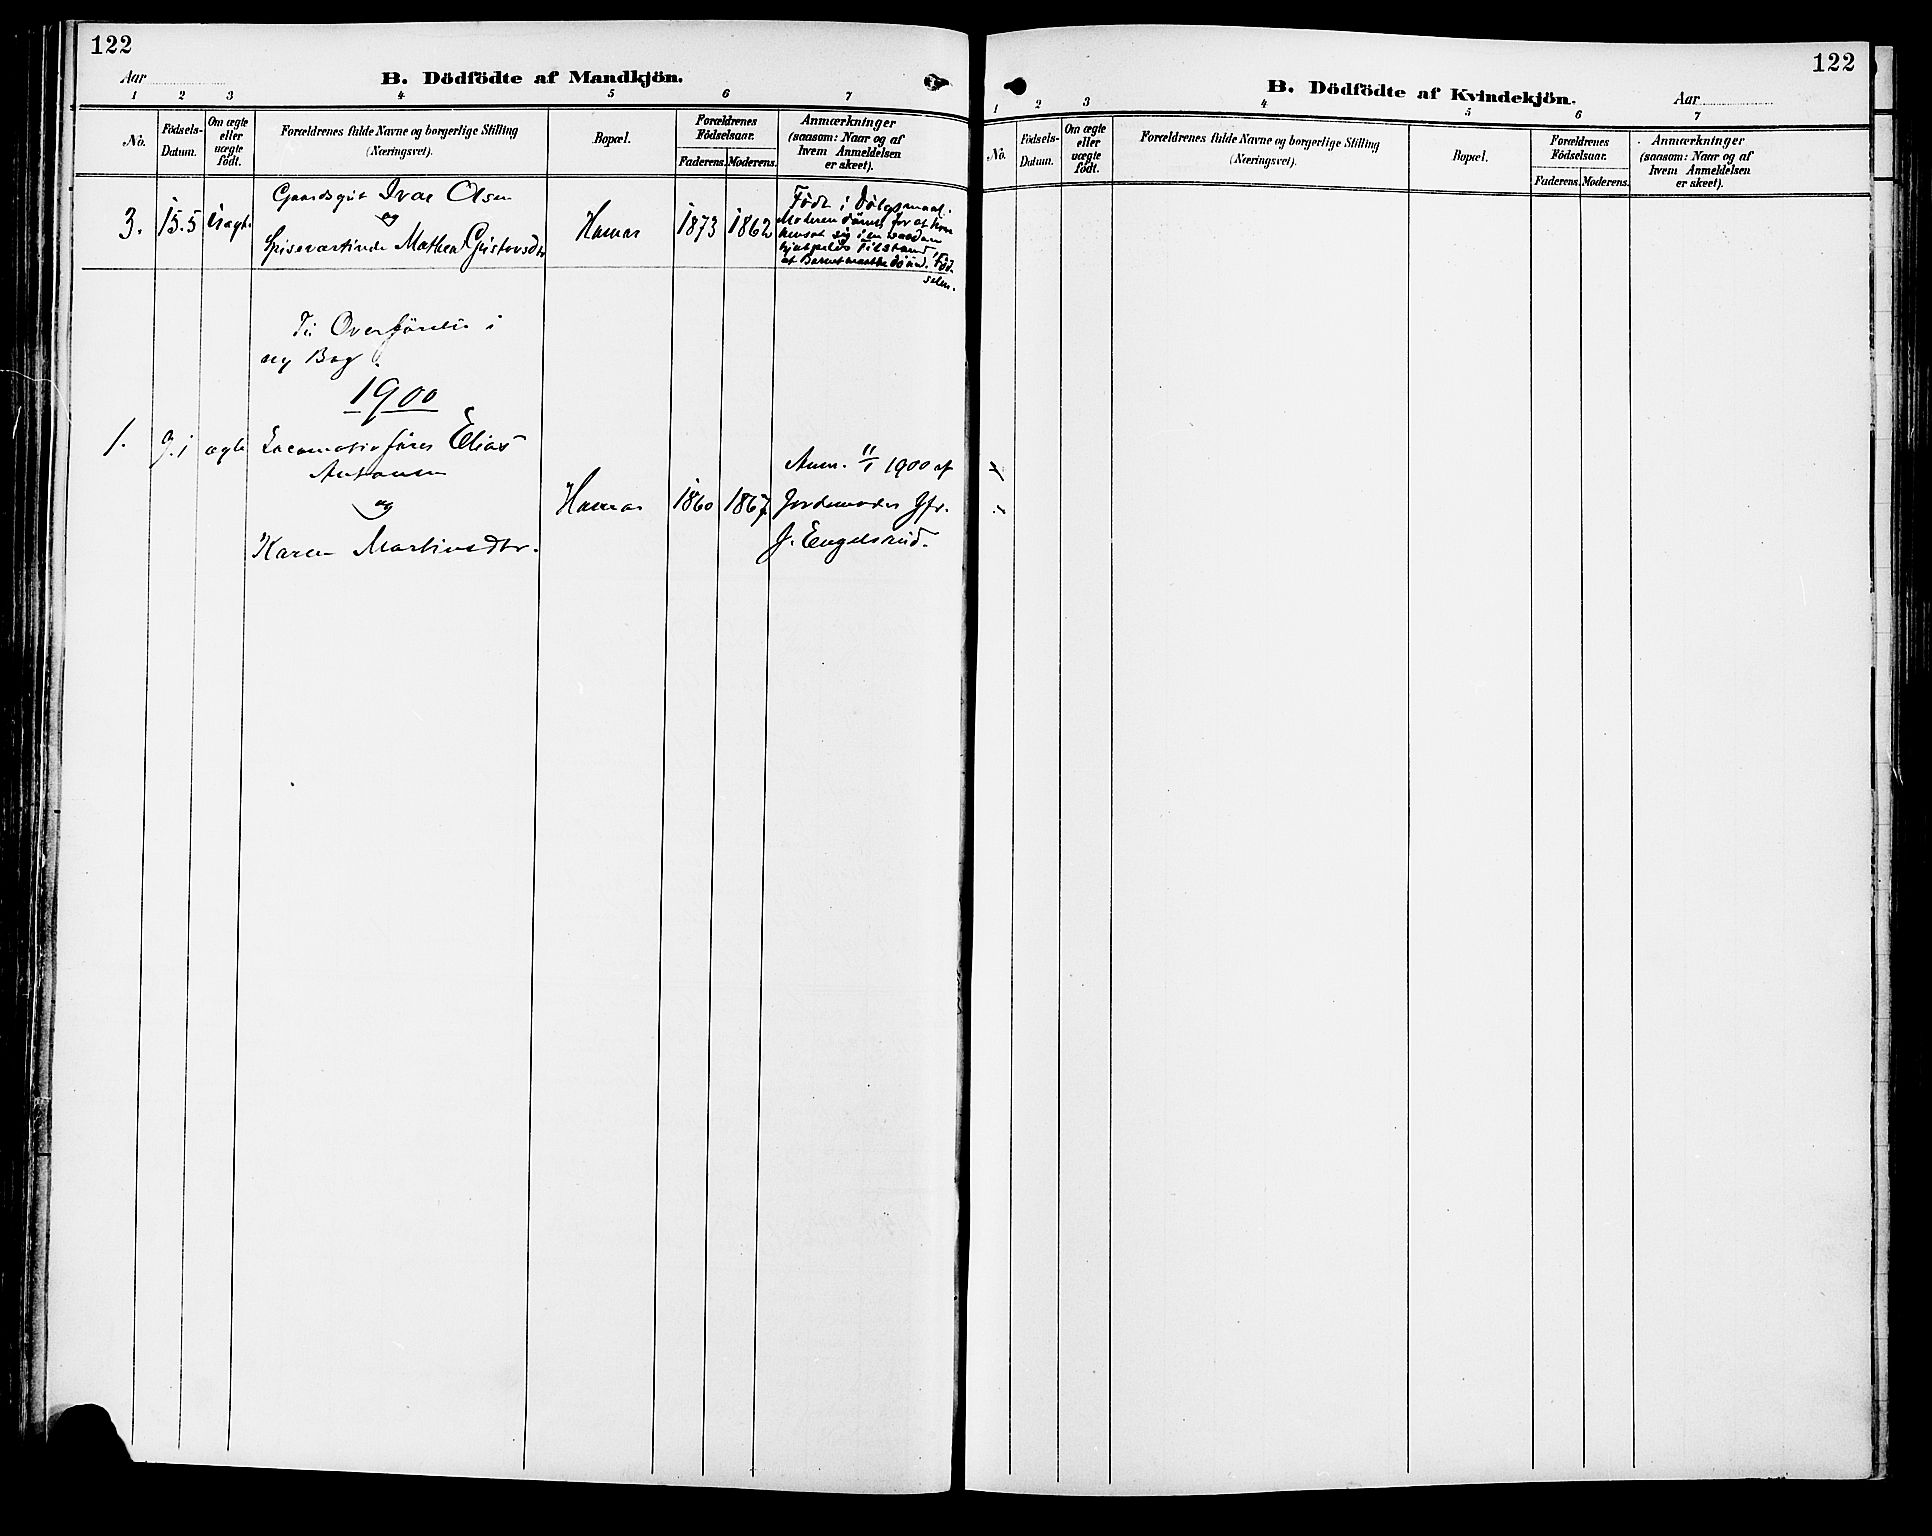 122
Aar
B. Dödfödte af Mandkjön.
1 2 3 4 5 6 7
No.
Födsels-
Datum.
Om ægte
eller
uægte
födt.
Forældrenes fulde Navne og borgerlige Stilling
(Næringsvei).
Bopæl.
Forældrenes
Födselsaar.
Faderens. Moderens.
Anmærkninger
(saasom: Naar og af
hvem Anmeldelsen
er skeet).
3. 15.5 Uægte
Gaardsgut Ivar Olsen
og
Mathea Gustavsdtr
Hamar 1873 1862
Født i Dølgsmaal.
Moderen dømt for at have
hensat sig i en saadan
hjælpeløs Tilstand,
at Barnet maatte dø ind. Fød
selen.
Til Overførelse i
ny Bog
1900
1. 9.1 ægte
Locomotivfører Elias
Antonsen
og
Karen Martinsdtr.
Hamar 1860 1867
Anm. 11/1 1900 af
Jordemoder Jfr.
J. Engelsrud.
122
B. Dödfödte af Kvindekjön.
Aar
1 2 3 4 5 6 7
No.
Födsels-
Datum.
Om ægte
eller
uægte
födt.
Forældrenes fulde Navne og borgerlige Stilling
(Næringsvei).
Bopæl.
Forældrenes
Födselsaar.
Faderens. Moderens.
Anmærkninger
(saasom: Naar og af
hvem Anmeldelsen
er skeet).